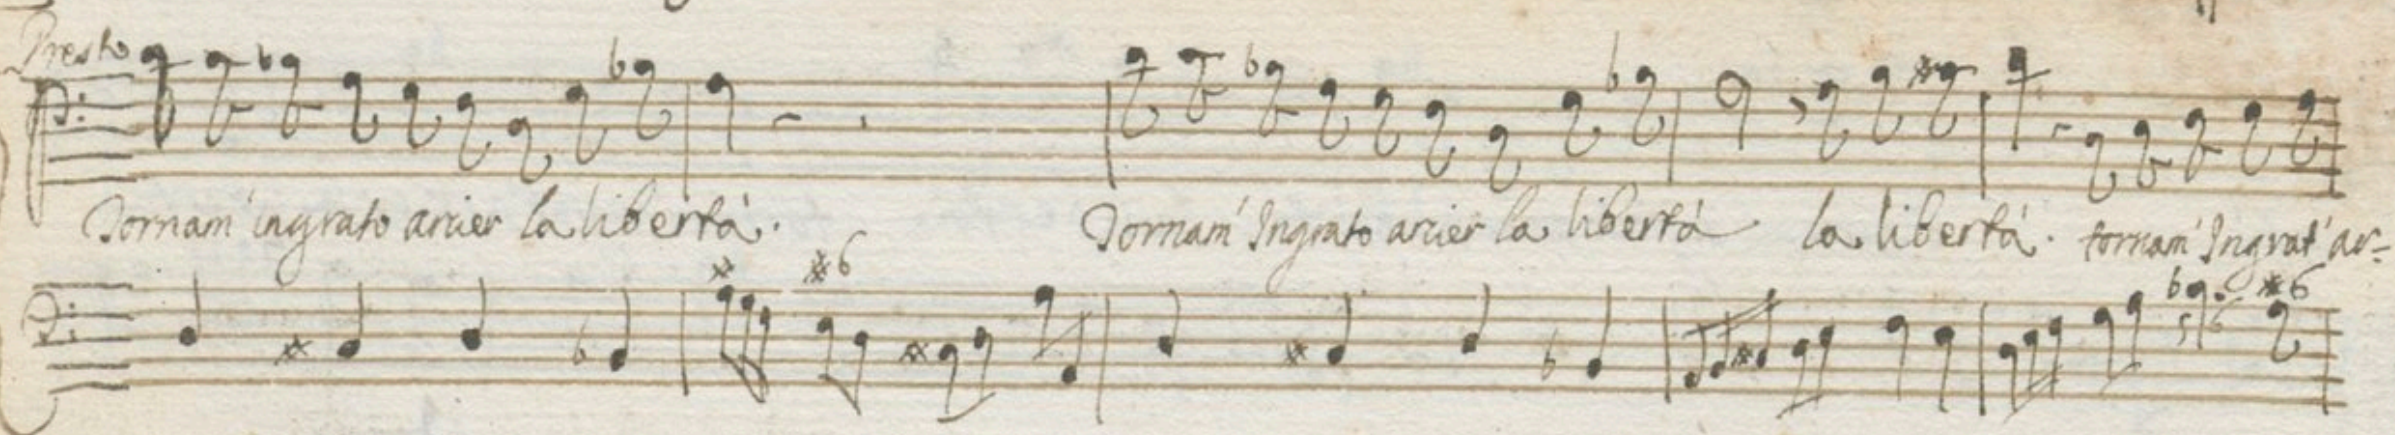 Presto
Tornam' ingrato arcier la libertà. Tornam' Ingrato arcier la libertà la libertà. tornam' Ingrat' ar-
6 5 6 6